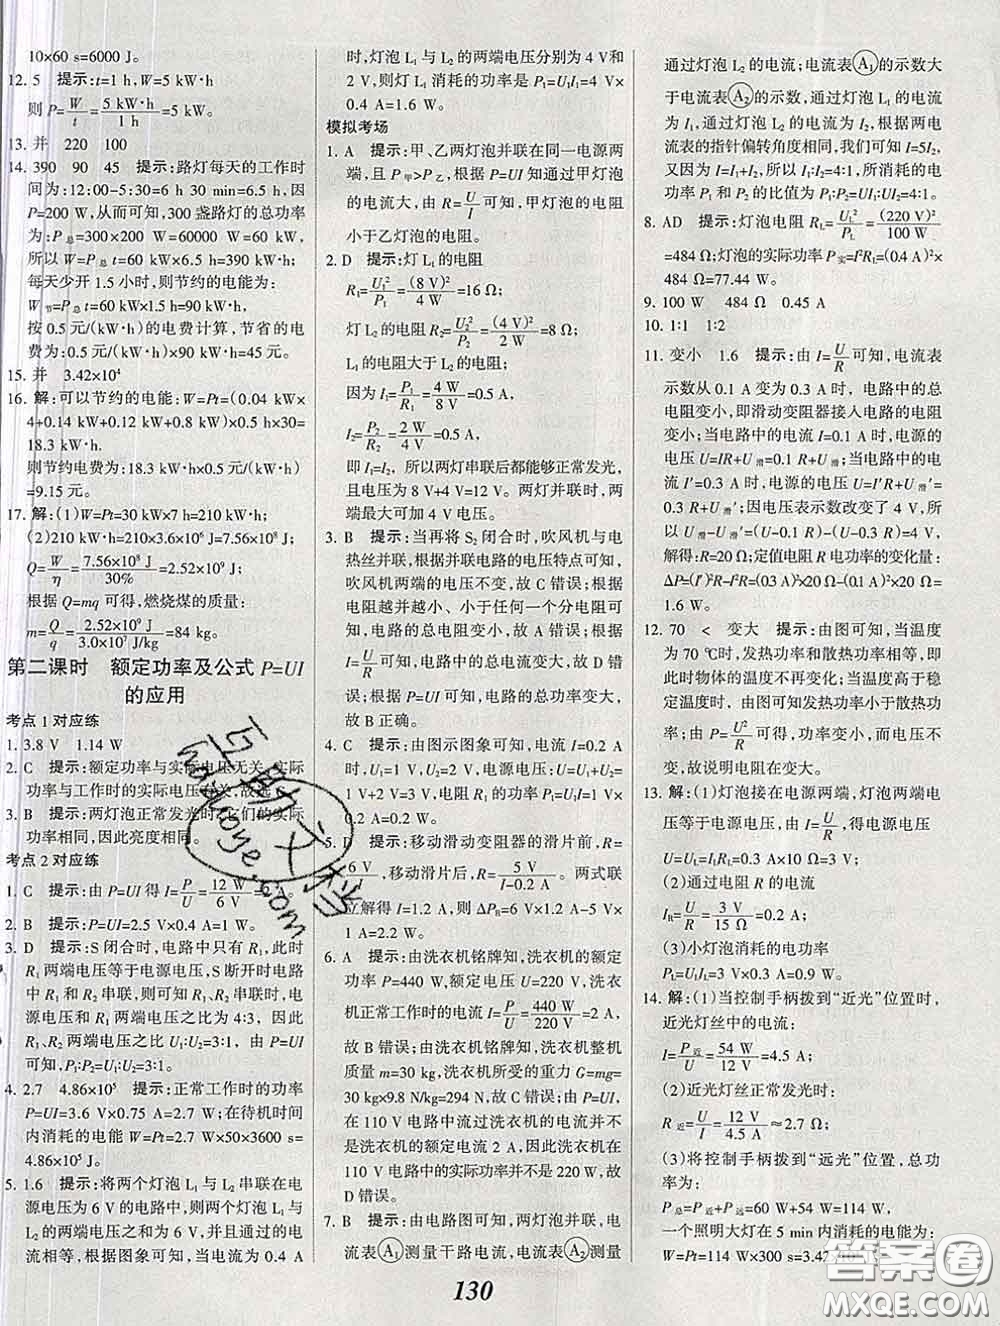 10×60 s=6000 J。
12. 5　提示:t=1 h,W=5 kW·h
则 P=W/t=5 kW·h/1 h=5 kW。
13. 并　220　100
14. 390　90　45　提示:路灯每天的工作时
间为:12:00-5:30=6 h 30 min=6.5 h,因
P=200 W,从而可知,300 盏路灯的总功率
为:P总=300×200 W=60000 W=60 kW;
消耗的电能:W=P总 t=60 kW×6.5 h=390 kW·h;
每天少开 1.5 小时,则节约的电能为:
W节=P总 t=60 kW×1.5 h=90 kW·h,
按 0.5 元/(kW·h)的电费计算,节省的电
费为:0.5 元/(kW·h)×90 kW·h=45 元。
15. 并　3.42×10⁴
16. 解:可以节约的电能:W=Pt=(0.04 kW×
4+0.14 kW+0.12 kW+0.8 kW)×0.5 h×30=
18.3 kW·h。
则节约电费为:18.3 kW·h×0.5 元/(kW·h)
=9.15 元。
17. 解:(1)W=Pt=30 kW×7 h=210 kW·h;
(2)210 kW·h=210×3.6×10⁶ J=7.56×10⁸ J;
Q=W/η=7.56×10⁸ J/30%=2.52×10⁹ J;
根据 Q=mq 可得,燃烧煤的质量:
m=Q/q=2.52×10⁹ J/3.0×10⁷ J/kg=84 kg。
第二课时　额定功率及公式 P=UI
的应用
考点 1 对应练
1. 3.8 V　1.14 W
2. C　提示:额定功率与实际电压无关,实际
功率与工作时的实际电压有关,故选 C。
3. B　提示:两灯泡正常发光时,它们的实际
功率相同,因此亮度相同。
考点 2 对应练
1. C　提示:由 P=UI 得 I=P/U=12 W/6 V=2 A。
2. B　提示:P=UI=2.5 V×0.4 A=1 W。
3. D　提示:S 闭合时,电路中只有 R₁,此时
R₁ 两端电压等于电源电压,S 断开时电路
中 R₁ 和 R₂ 串联,则可知 R₁、R₂ 串联时,电
源电压和 R₁ 两端电压之比为 4:3,因此
R₁、R₂ 两端电压之比 U₁:U₂=3:1,由 P=UI
可知,P₁:P₂=U₁:U₂=3:1。
4. 2.7　4.86×10⁵　提示:正常工作时的功率
P=UI=3.6 V×0.75 A=2.7 W;在待机时间
内消耗的电能 W=Pt=2.7 W×50×3600 s=
4.86×10⁵ J。
5. 1.6　提示:将两个灯泡 L₁ 与 L₂ 串联在电
源电压为 6 V 的电路中,则两个灯泡 L₁ 与
L₂ 的两端电压之和为 6 V,并且通过的电
流相等,根据图象可知,当电流为 0.4 A
时,灯泡 L₁ 与 L₂ 的两端电压分别为 4 V和
2 V,则灯 L₁ 消耗的功率是 P₁=U₁I₁=4 V×
0.4 A=1.6 W。
模拟考场
1. A　提示:甲、乙两灯泡并联在同一电源两
端,且 P甲>P乙,根据 P=UI 知通过甲灯泡
的电流大,由 R=U/I 可知,甲灯泡的电阻
小于乙灯泡的电阻。
2. D　提示:灯 L₁ 的电阻
R₁=U₁²/P₁=(8 V)²/4 W=16 Ω;
灯 L₂ 的电阻 R₂=U₂²/P₂=(4 V)²/2 W=8 Ω;
L₁ 的电阻大于 L₂ 的电阻;
因为 I₁=P₁/R₁=4 W/8 V=0.5 A,
I₂=P₂/R₂=2 W/4 V=0.5 A,
即 I₁=I₂,所以两灯串联后都能够正常发光,
且电压为 8 V+4 V=12 V。两灯并联时,两
端最大可加 4 V 电压。
3. B　提示:当再将 S₂ 闭合时,吹风机与电
热丝并联,根据并联电路的电压特点可知,
吹风机两端的电压不变,故 C 错误;根据
电阻越并越小、小于任何一个分电阻可
知,电路的总电阻变小,故 A 错误;由 I=
U/R 可知,电路中的总电流变大,故 D 错误;
根据 P=UI 可知,电路的总功率变大,
故 B 正确。
4. C　提示:由图示图象可知,电流 I=0.2 A
时,U₁=1 V,U₂=2 V,电源电压:U=U₁+U₂=
1 V+2 V=3 V,电阻 R₁ 的功率 P=U₁I=1 V×
0.2 A=0.2 W。
5. D　提示:移动滑动变阻器的滑片前,R=
6 V/I,移动滑片后,R=5 V/I-0.2 A。两式联
立解得:I=1.2 A,则 ΔP_R=6 V×1.2 A-5 V×
1 A=2.2 W。
6. A　提示:由洗衣机铭牌知,洗衣机的额定
功率 P=440 W,额定电压 U=220 V,洗衣
机正常工作时的电流 I=P/U=440 W/220 V=2 A,
故 B 错误;由洗衣机铭牌知,洗衣机整机
质量 m=30 kg,洗衣机所受的重力 G=mg=
30 kg×9.8 N/kg=294 N,故 C 错误;洗衣机
在 110 V 电路中流过洗衣机的电流并不
是洗衣机的额定电流 2 A,因此洗衣机在
110 V 电路中的实际功率并不是 220 W,故
D 错误。
7. B　提示:由电路图可知,两灯泡并联,电
流表 A₁ 测量干路电流,电流表 A₂ 测量
通过灯泡 L₂ 的电流;电流表 A₁ 的示数大
于电流表 A₂ 的示数,通过灯泡 L₁ 的电流
为 I₁,通过灯泡 L₂ 的电流为 I₂,根据两电
流表的指针偏转角度相同,我们可知 I=5I₂,
又因为 I=I₁+I₂,所以 I₁:I₂=4:1,所消耗的电
功率 P₁ 和 P₂ 的比值为 P₁:P₂=UI₁:UI₂=4:1。
8. AD　提示:灯泡电阻 R_L=U_L²/P_L=(220 V)²/100 W
=484 Ω;灯泡的实际功率 P实=I²R_L=(0.4 A)²×
484 Ω=77.44 W。
9. 100 W　484 Ω　0.45 A
10. 1:1　1:2
11. 变小　1.6　提示:由 I=U/R 可知,电流表
示数从 0.1 A 变为 0.3 A 时,电路中的总
电阻变小,即滑动变阻器接入电路的电阻
变小;当电路中的电流 I=0.1 A 时,电源的
电压 U=IR+U滑=0.1 R+U滑;当电路中的电
流 I′=0.3 A 时,电源的电压 U=I′R+U滑′=
0.3 R+U滑′;因电压表示数改变了 4 V,所
以 U滑-U滑′=(U-0.1 R)-(U-0.3 R)=4 V,
解得:R=20 Ω;定值电阻 R 电功率的变化量:
ΔP=(I′)²R-I²R=(0.3 A)²×20 Ω-(0.1 A)²×20 Ω=
1.6 W。
12. 70　<　变大　提示:由图可知,当温度
为 70 ℃时,发热功率和散热功率相等,
此时物体的温度不再变化;当温度高于稳
定温度时,由图可知发热功率小于散热功
率;由 P=U²/R 可知,功率变小,而电压不
变,故说明电阻在变大。
13. 解:(1)灯泡接在电源两端,灯泡两端电
压等于电源电压,由 I=U/R,得电源电压
U=U_L=I_LR_L=0.3 A×10 Ω=3 V;
(2)通过电阻 R 的电流
I_R=U/R=3 V/15 Ω=0.2 A;
(3)小灯泡消耗的电功率
P_L=UI_L=3 V×0.3 A=0.9 W。
14. 解:(1)当控制手柄拨到“近光”位置时,
近光灯丝中的电流:
I=P近/U=54 W/12 V=4.5 A;
(2)近光灯丝正常发光时:
R近=U/I=12 V/4.5 A≈2.7 Ω;
(3)将控制手柄拨到“远光”位置,总功
率为:
P总=P远+P近=60 W+54 W=114 W,
一个照明大灯在 5 min 内消耗的电能为:
W=Pt=114 W×300 s=3.42
130
互助文档
hazuoye.com
答案圈
MXQE.COM